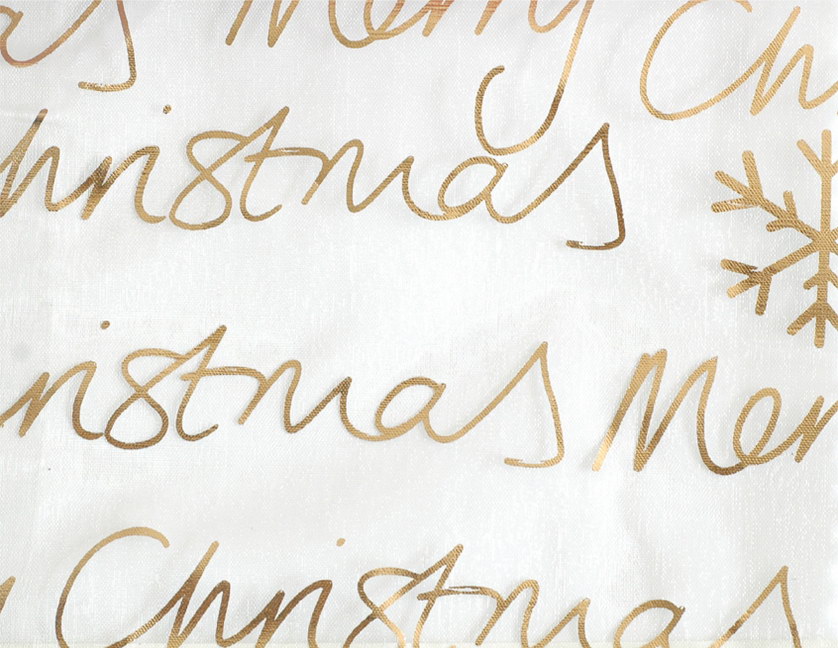 as Merry Ch
hristmas
ristmas Mer
y Christmas